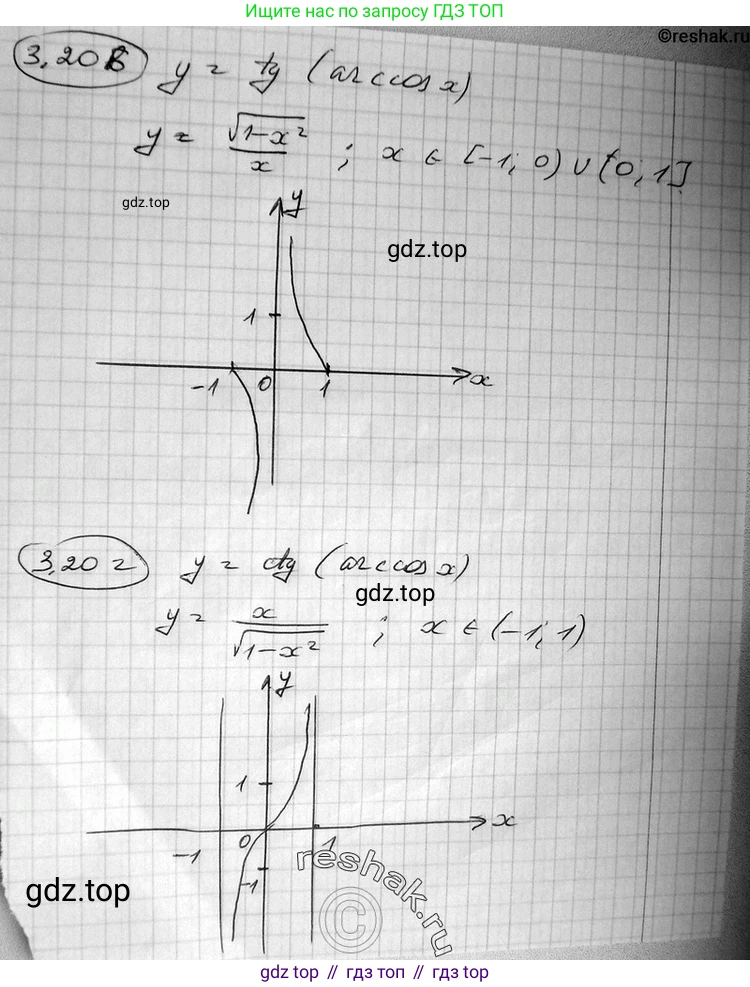 Ищите нас по запросу ГДЗ ТОП
©reshak.ru
3.20в y = tg (arccos x)
y = √(1-x²)/x ; x ∈ [-1; 0) ∪ (0; 1]
gdz.top
y
gdz.top
1
-1 0 1 x
3.20 г y = ctg (arccos x)
gdz.top
y = x/√(1-x²) ; x ∈ (-1; 1)
y
1
x
-1 0 1
-1
reshak.ru
©
gdz.top
gdz top // гдз топ // гдз top